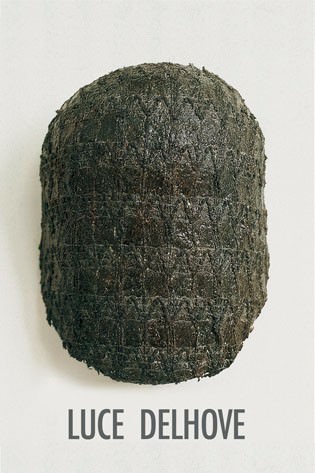 LUCE DELHOVE